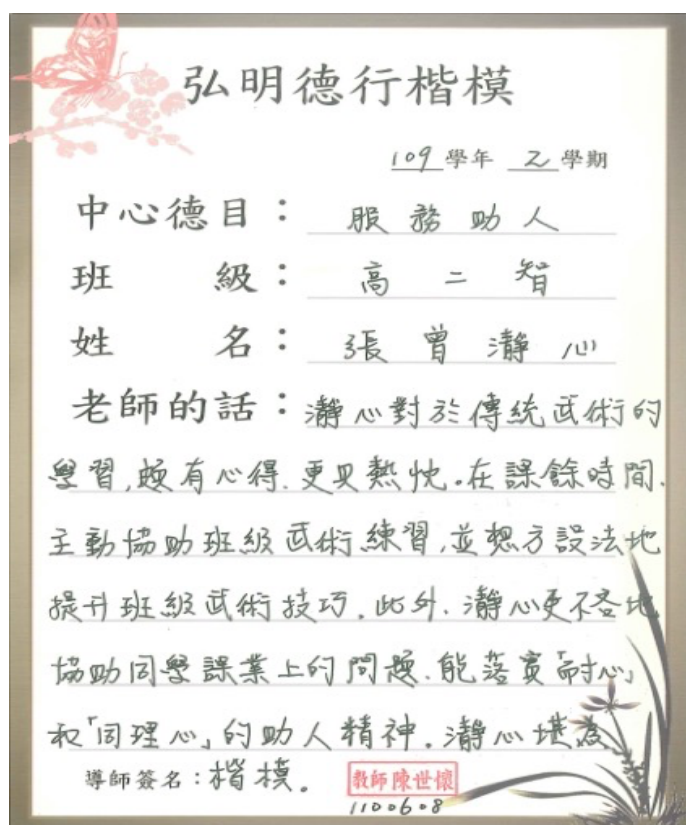 弘明德行楷模
109 學年 乙 學期
中心德目：服務助人
班級：高二智
姓名：張曾瀞心
老師的話：瀞心對於傳統武術的
學習,頗有心得.更見熱忱。在課餘時間.
主動協助班級武術練習,並想方設法地
提升班級武術技巧.此外.瀞心更不吝地
協助同學課業上的問題.能落實「耐心」
和「同理心」的助人精神.瀞心堪為
導師簽名：楷模。 教師陳世懷
1100608